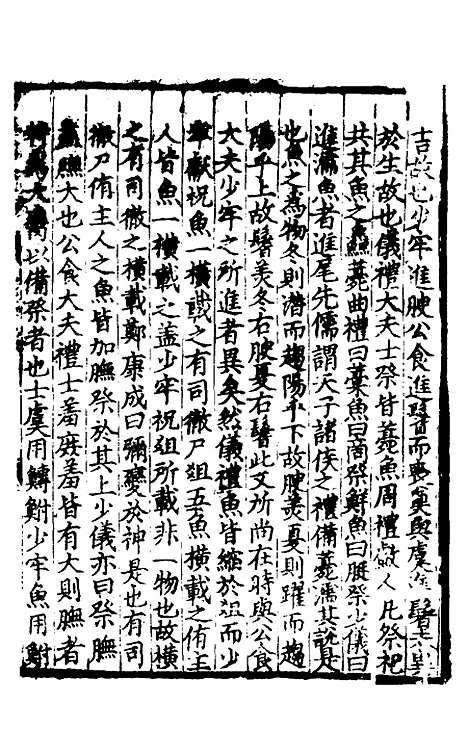 吉故也少牢進腴公食進鬐而
於生故也儀禮大夫士祭皆薨魚周禮䱷人凡祭祀
共其魚之鱻薧曲禮曰薧魚曰商祭鮮魚曰脡祭少儀曰
進濡魚者進尾先儒謂天子諸侯之禮備薧濡其說是
也魚之為物冬則潜而趨陽平下故腴羙夏則躍而趨
陽平上故鬐羙冬右腴夏右鬐此又所尚在時與公食
大夫少牢之所進者異矣然儀禮魚皆縮於俎而少
牢獻祝魚一橫載之有司徹尸俎五魚橫載之侑主
人皆魚一橫載之盖少牢祝俎所載非一物也故橫
之有司徹之橫載鄭康成曰彌變於神是也有司
徹尸侑主人之魚皆加膴祭於其上少儀亦曰祭膴
盖膴大也公食大夫禮士羞庶羞皆有大則膴者
以備祭者也士虞用鱄鮒少牢魚用鮒